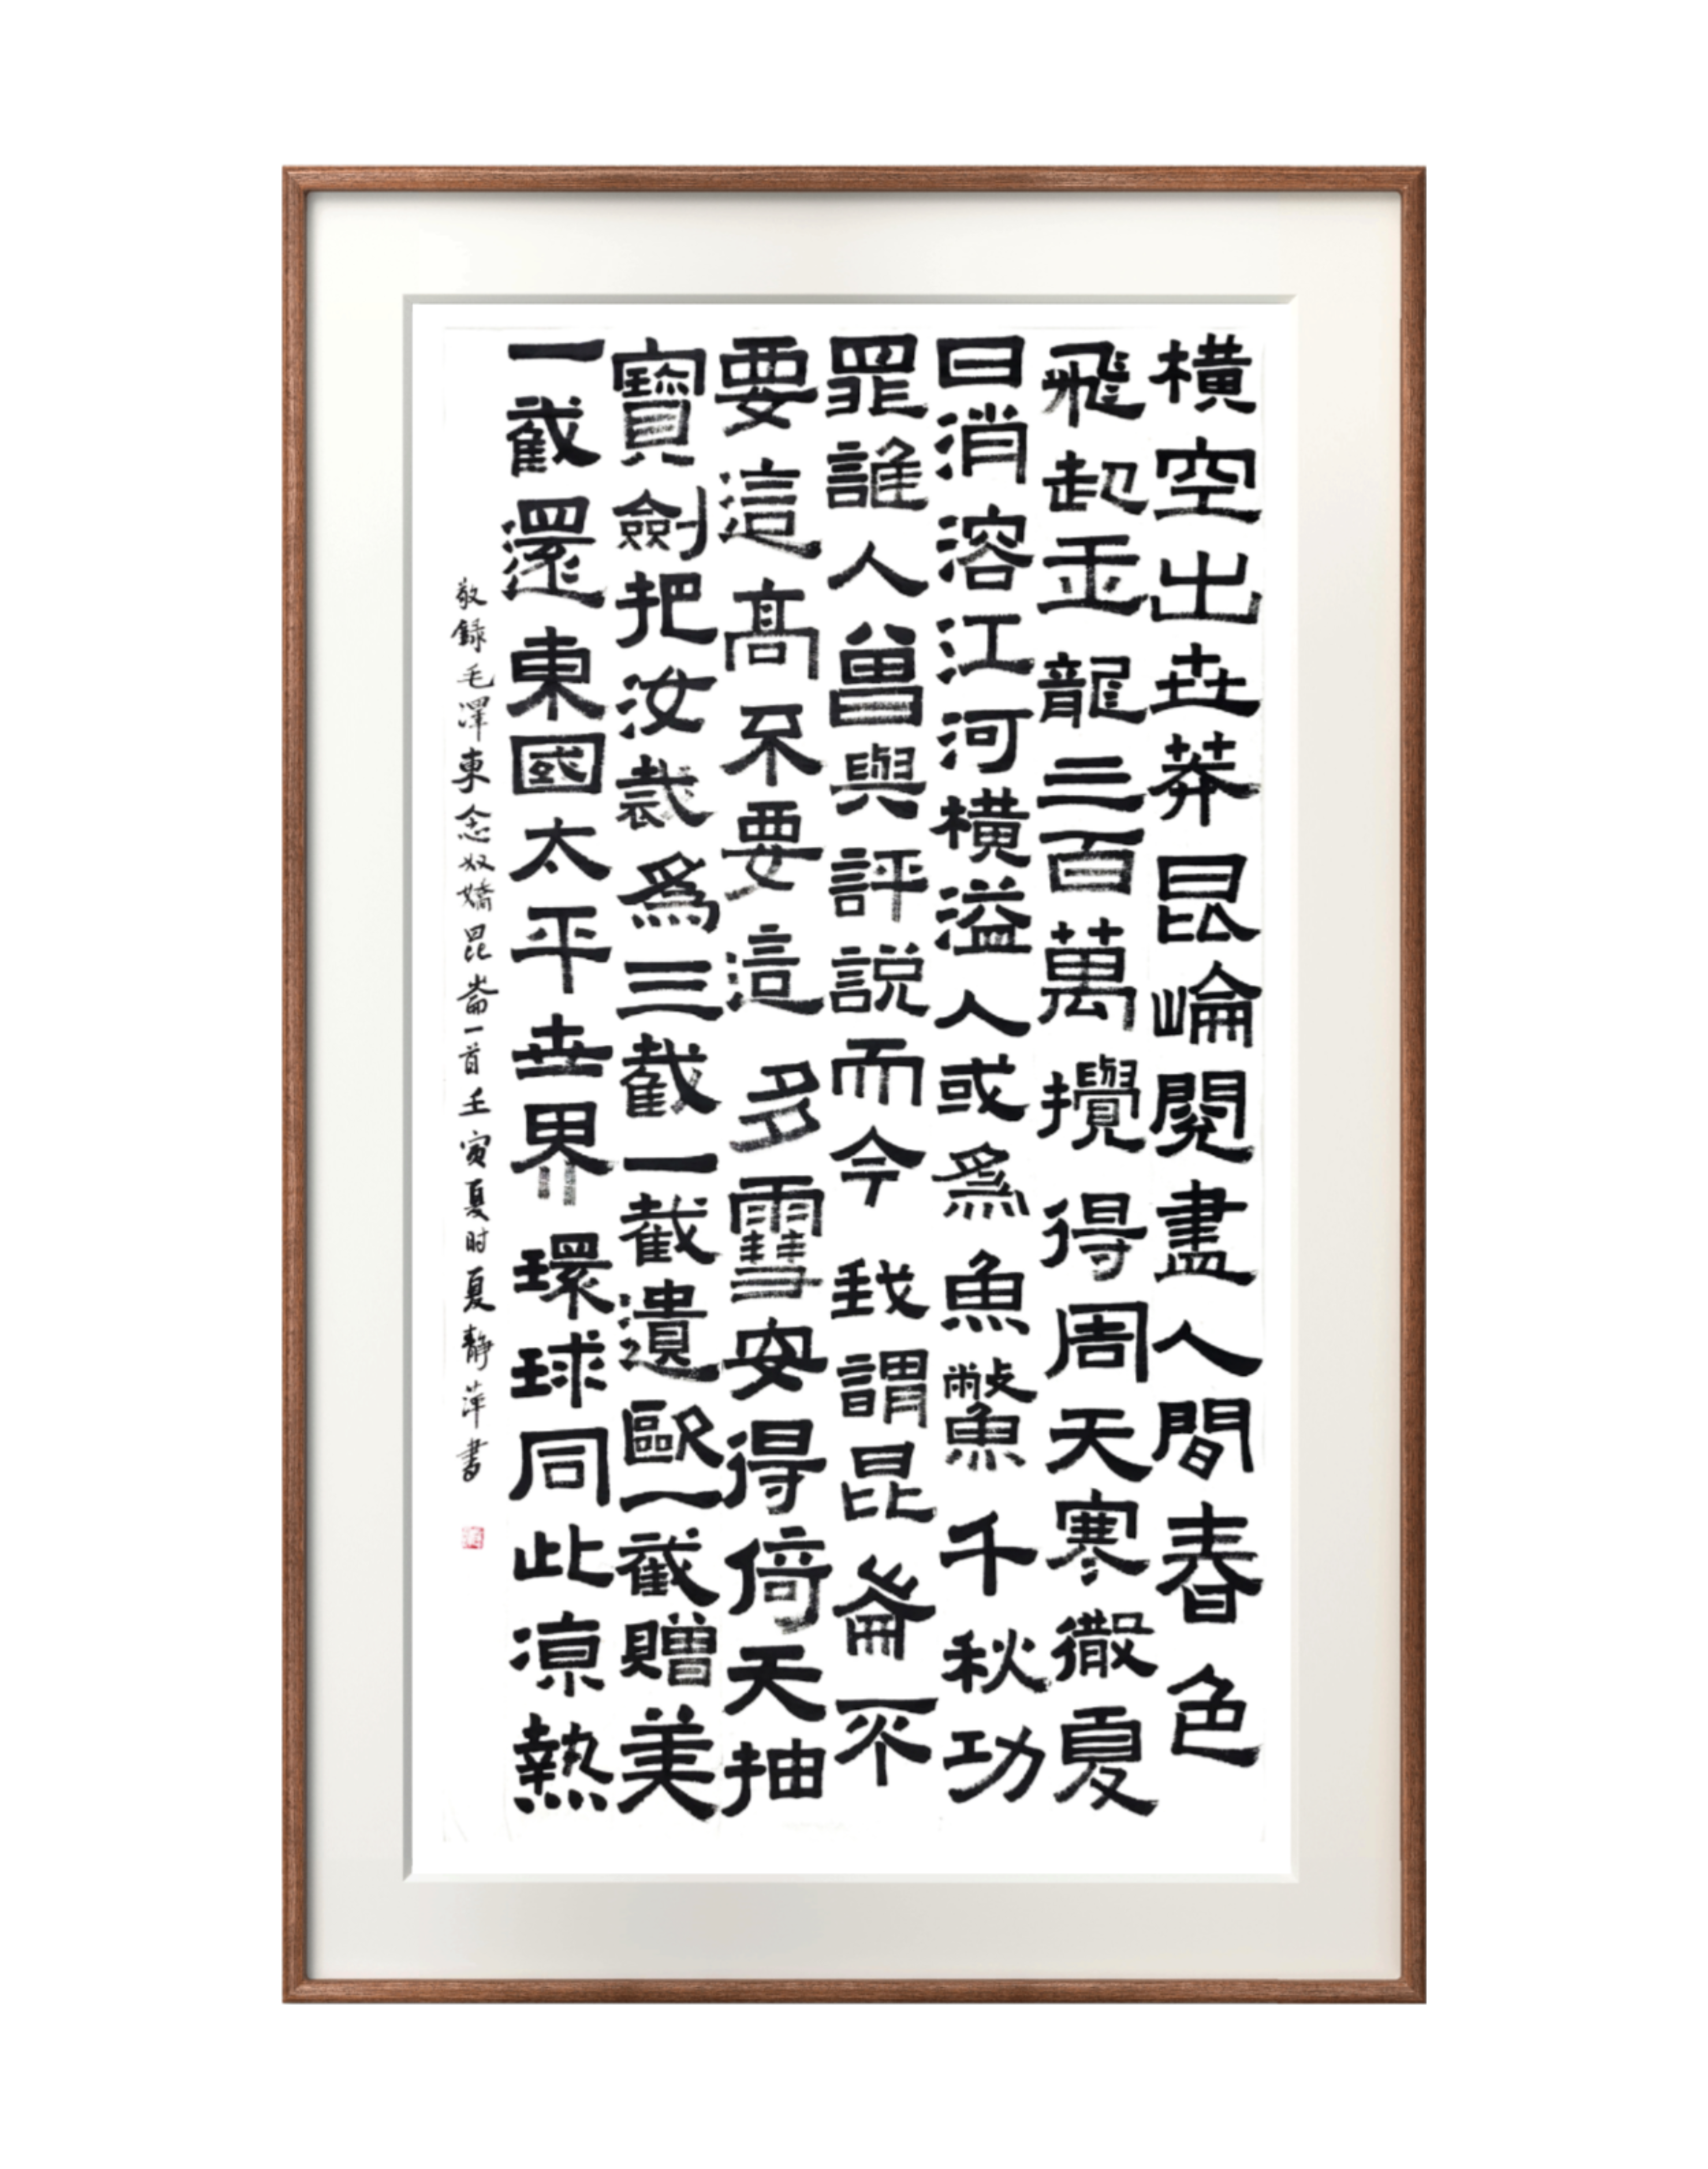 橫空出世莽昆崘閱盡人間春色
飛起玉龍三百萬攪得周天寒徹夏
日消溶江河橫溢人或爲魚鱉千秋功
罪誰人曾與評説而今我謂昆崙不
要這高不要這多雪安得倚天抽
寶劍把汝裁爲三截一截遺歐一截贈美
一截還東國太平世界環球同此涼熱
敬録毛澤東念奴嬌昆崙一首壬寅夏时夏靜萍書